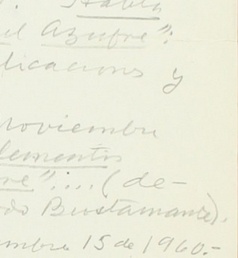 Habla
el Azufre":
licaciones y
noviembre
lementos
re"... (de-
do Bustamante).
embre 15 de 1960.-